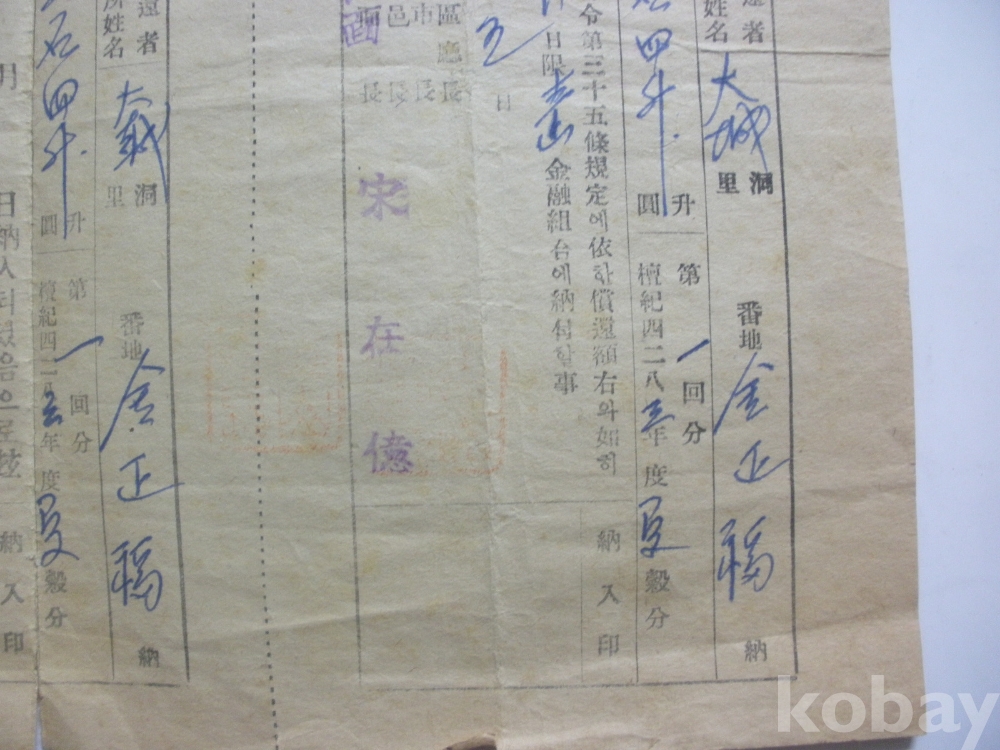 還者
姓名
大城
洞
里
番地
金正福
納
石四斗
升
圓
第一回分
檀紀四二八三年度夏穀分
令第三十五條規定에依한償還額右와如히
日限
金融組合에納付할事
納入印
五
日
區廳長
市長
邑長
面長
宋在億
還者
所姓名
洞
里
番地
金正福
納
石四斗
升
圓
第一回分
檀紀四二八三年度夏穀分
月
日納入되였음으로玆
納入印
kobay